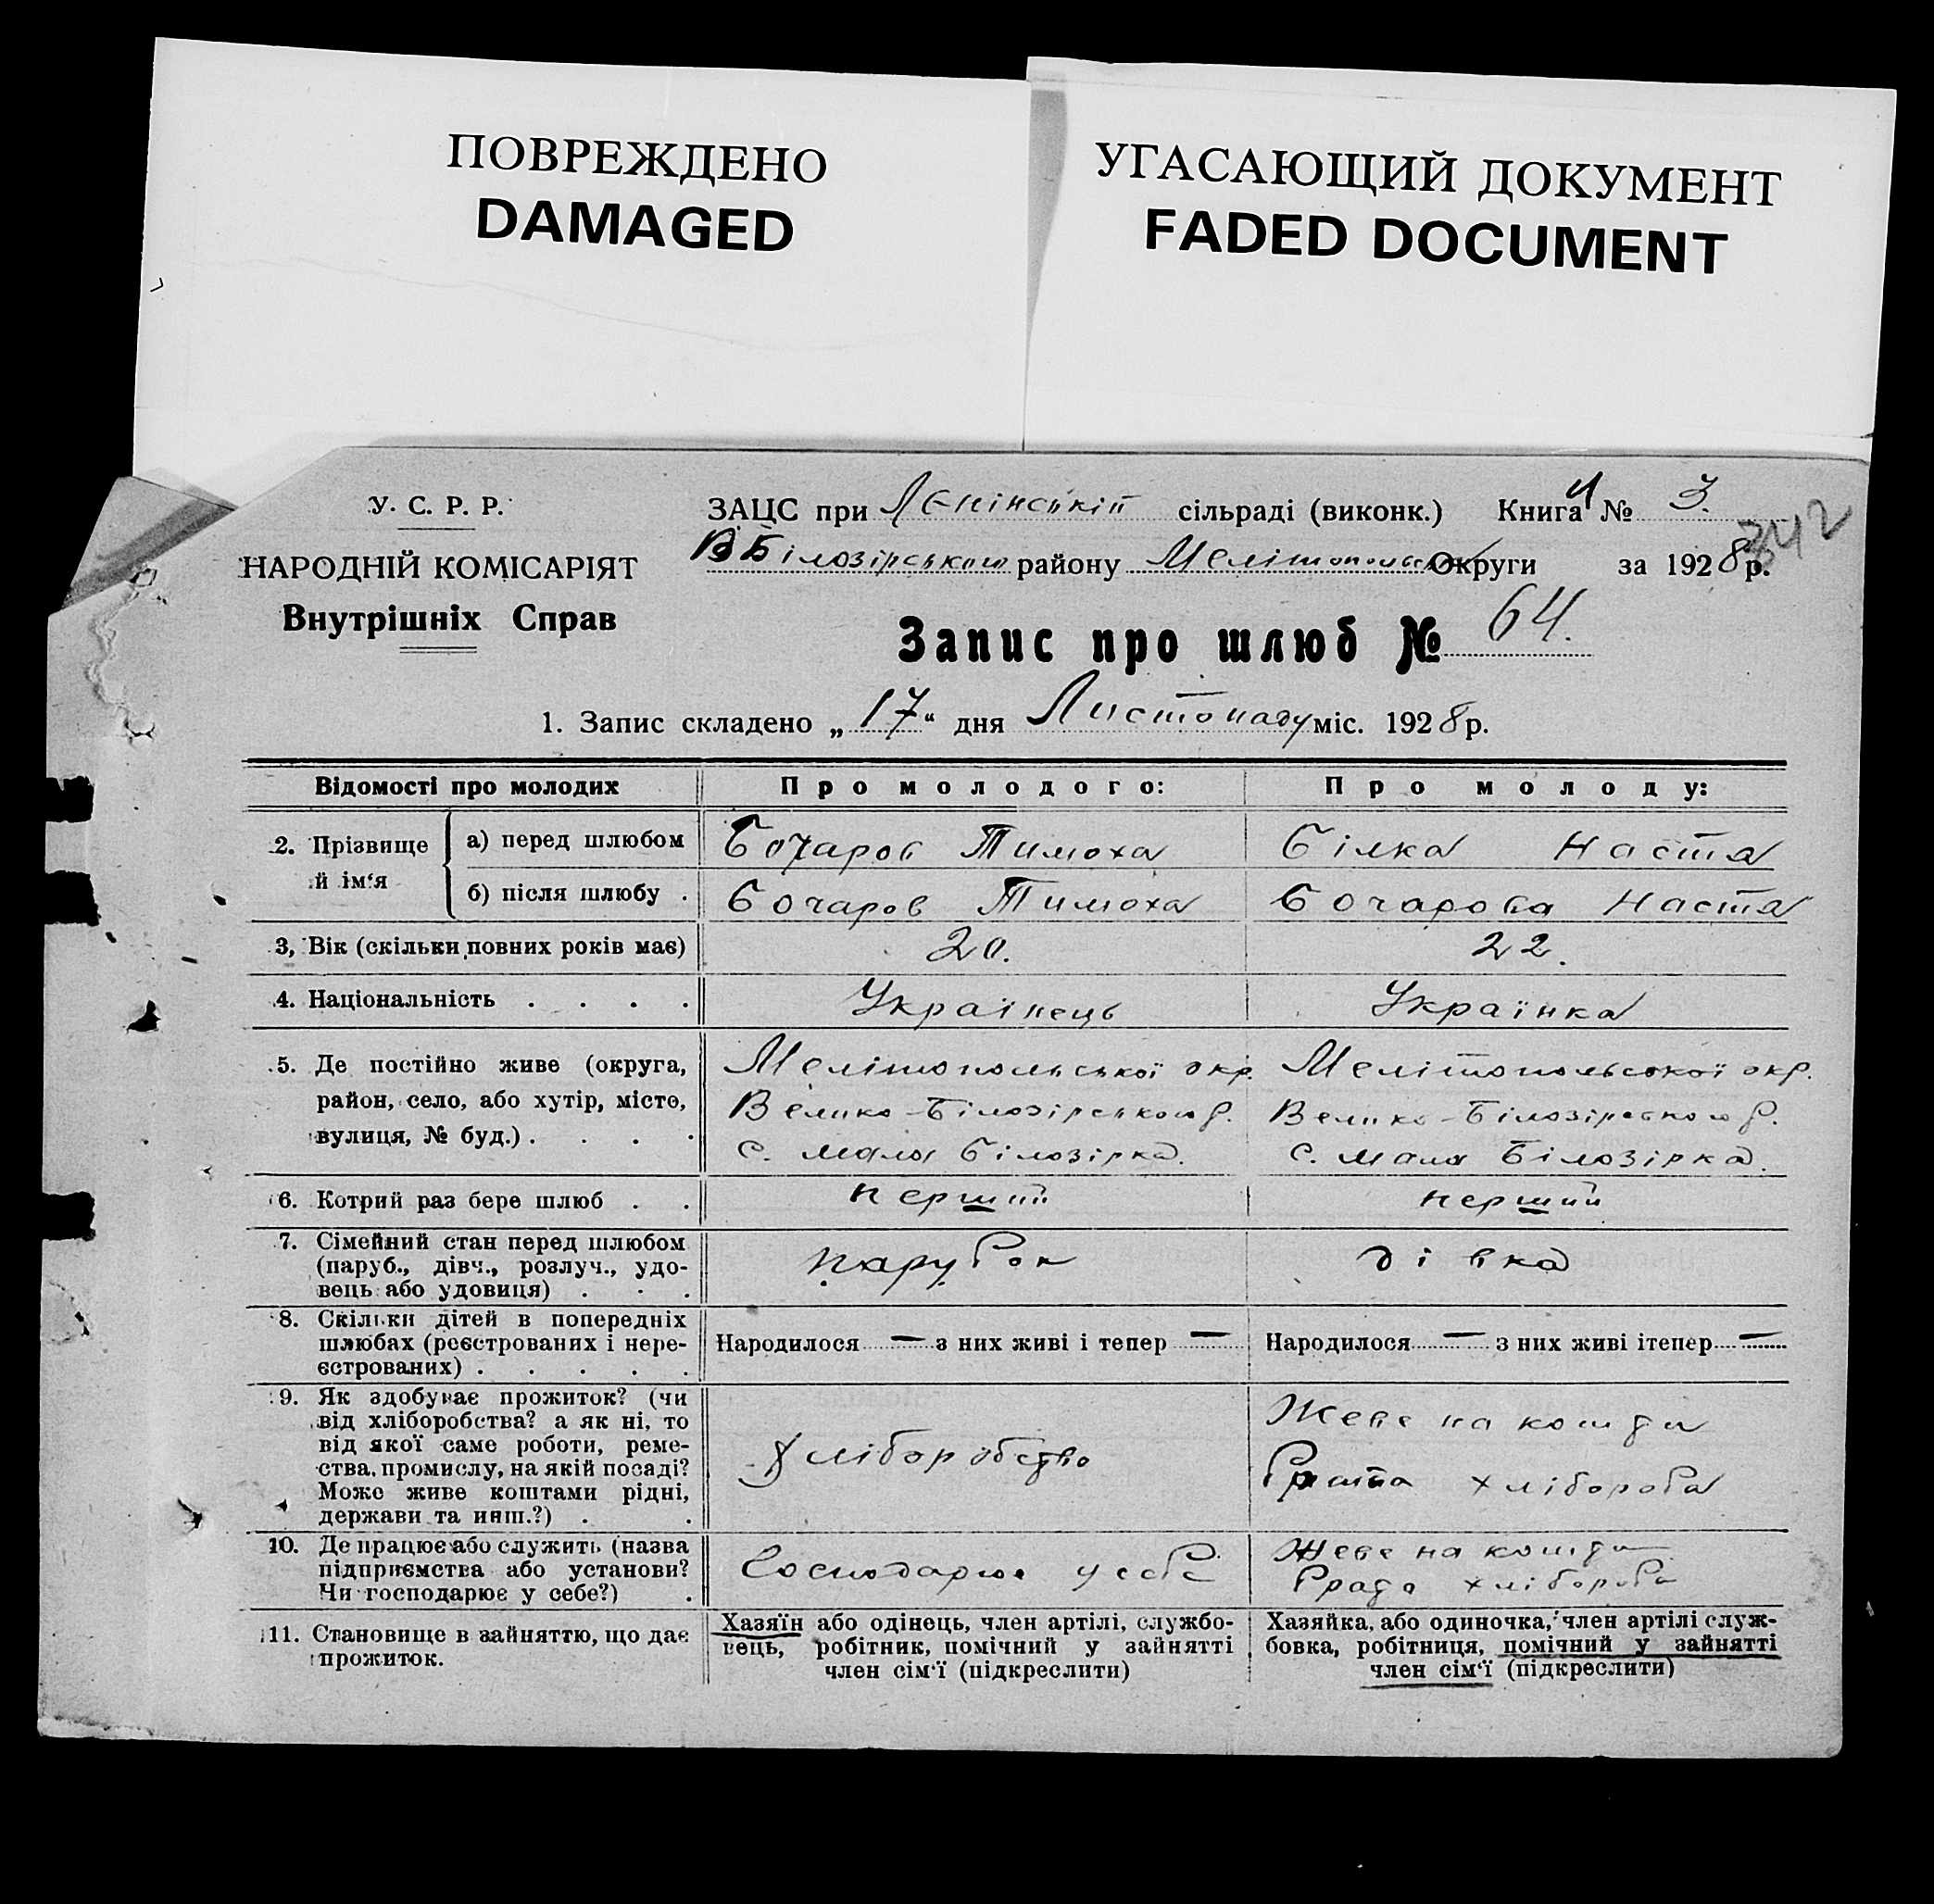 ПОВРЕЖДЕНО
DAMAGED
УГАСАЮЩИЙ ДОКУМЕНТ
FADED DOCUMENT
У. С. Р. Р.
НАРОДНІЙ КОМІСАРІЯТ
Внутрішніх Справ
ЗАЦС при Лєнінській сільраді (виконк.) Книга № 3.
342
В Білозірського району Мелітопольськ Округи за 1928 р.
Запис про шлюб № 64.
1. Запис складено „17“ дня Листопаду міс. 1928 р.
Відомості про молодих
Про молодого:
Про молоду:
2. Прізвище й ім‘я
а) перед шлюбом
Бочаров Тимоха
Білка Настя
б) після шлюбу .
Бочаров Тимоха
Бочарова Настя
3, Вік (скільки повних років має)
20.
22.
4. Національність . . . .
Українець
Українка
5. Де постійно живе (округа,
район, село, або хутір, місто,
вулиця, № буд.) . . . .
Мелітопольської окр.
Велико-Білозірського р.
с. мала Білозірка.
Мелітопольської окр.
Велико-Білозірського р.
с. мала Білозірка.
6. Котрий раз бере шлюб . .
перший
перший
7. Сімейний стан перед шлюбом
(паруб., дівч., розлуч., удо-
вець або удовиця) . . .
парубок
дівка
8. Скільки дітей в попередніх
шлюбах (реєстрованих і нере-
єстрованих) . . . . .
Народилося — з них живі і тепер —
Народилося — з них живі ітепер —
9. Як здобуває прожиток? (чи
від хліборобства? а як ні, то
від якої саме роботи, реме-
ства, промислу, на якій посаді?
Може живе коштами рідні,
держави та инш.?) . .
Хліборобство
Жеве на кошти
хлібороба
10. Де працює або служить (назва
підприємства або установи?
Чи господарює у себе?) .
Господарює у себе
Жеве на кошти
хлібороба
11. Становище в зайняттю, що дає
прожиток.
Хазяїн або одінець, член артілі, службо-
вець, робітник, помічний у зайнятті
член сім‘ї (підкреслити)
Хазяйка, або одиночка, член артілі служ-
бовка, робітниця, помічний у зайнятті
член сім‘ї (підкреслити)